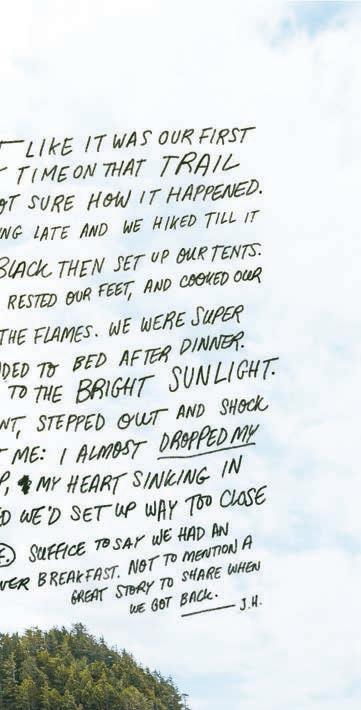 LIKE IT WAS OUR FIRST
TIME ON THAT TRAIL
SURE HOW IT HAPPENED.
LATE AND WE HIKED TILL IT
BLACK THEN SET UP OUR TENTS.
RESTED OUR FEET, AND COOKED OUR
THE FLAMES. WE WERE SUPER
TO BED AFTER DINNER.
TO THE BRIGHT SUNLIGHT.
STEPPED OUT AND SHOCK
ME: I ALMOST DROPPED MY
MY HEART SINKING IN
WE'D SET UP WAY TOO CLOSE
SUFFICE TO SAY WE HAD AN
BREAKFAST. NOT TO MENTION A
GREAT STORY TO SHARE WHEN
WE GOT BACK.
J.H.